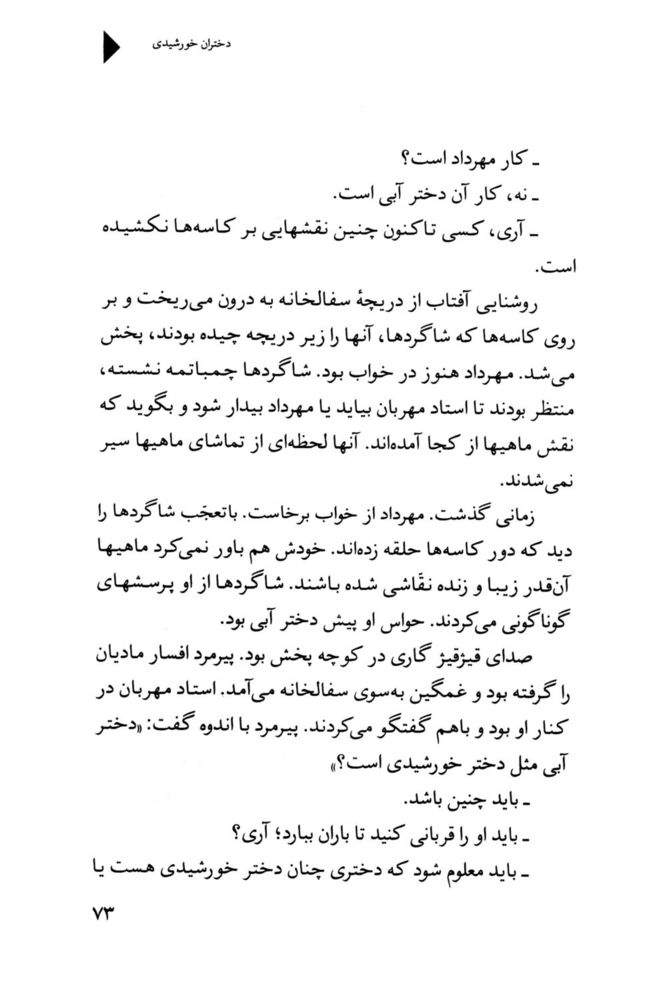 دختران خورشیدی
ـ کار مهرداد است؟
ـ نه، کار آن دختر آبی است.
ـ آری، کسی تاکنون چنین نقشهایی بر کاسه‌ها نکشیده
است.
روشنایی آفتاب از دریچهٔ سفالخانه به درون می‌ریخت و بر
روی کاسه‌ها که شاگردها، آنها را زیر دریچه چیده بودند، پخش
می‌شد. مهرداد هنوز در خواب بود. شاگردها چمباتمه نشسته،
منتظر بودند تا استاد مهربان بیاید یا مهرداد بیدار شود و بگوید که
نقش ماهیها از کجا آمده‌اند. آنها لحظه‌ای از تماشای ماهیها سیر
نمی‌شدند.
زمانی گذشت. مهرداد از خواب برخاست. باتعجّب شاگردها را
دید که دور کاسه‌ها حلقه زده‌اند. خودش هم باور نمی‌کرد ماهیها
آن‌قدر زیبا و زنده نقّاشی شده باشند. شاگردها از او پرسشهای
گوناگونی می‌کردند. حواس او پیش دختر آبی بود.
صدای قیژقیژ گاری در کوچه پخش بود. پیرمرد افسار مادیان
را گرفته بود و غمگین به‌سوی سفالخانه می‌آمد. استاد مهربان در
کنار او بود و باهم گفتگو می‌کردند. پیرمرد با اندوه گفت: «دختر
آبی مثل دختر خورشیدی است؟»
ـ باید چنین باشد.
ـ باید او را قربانی کنید تا باران ببارد؛ آری؟
ـ باید معلوم شود که دختری چنان دختر خورشیدی هست یا
۷۳